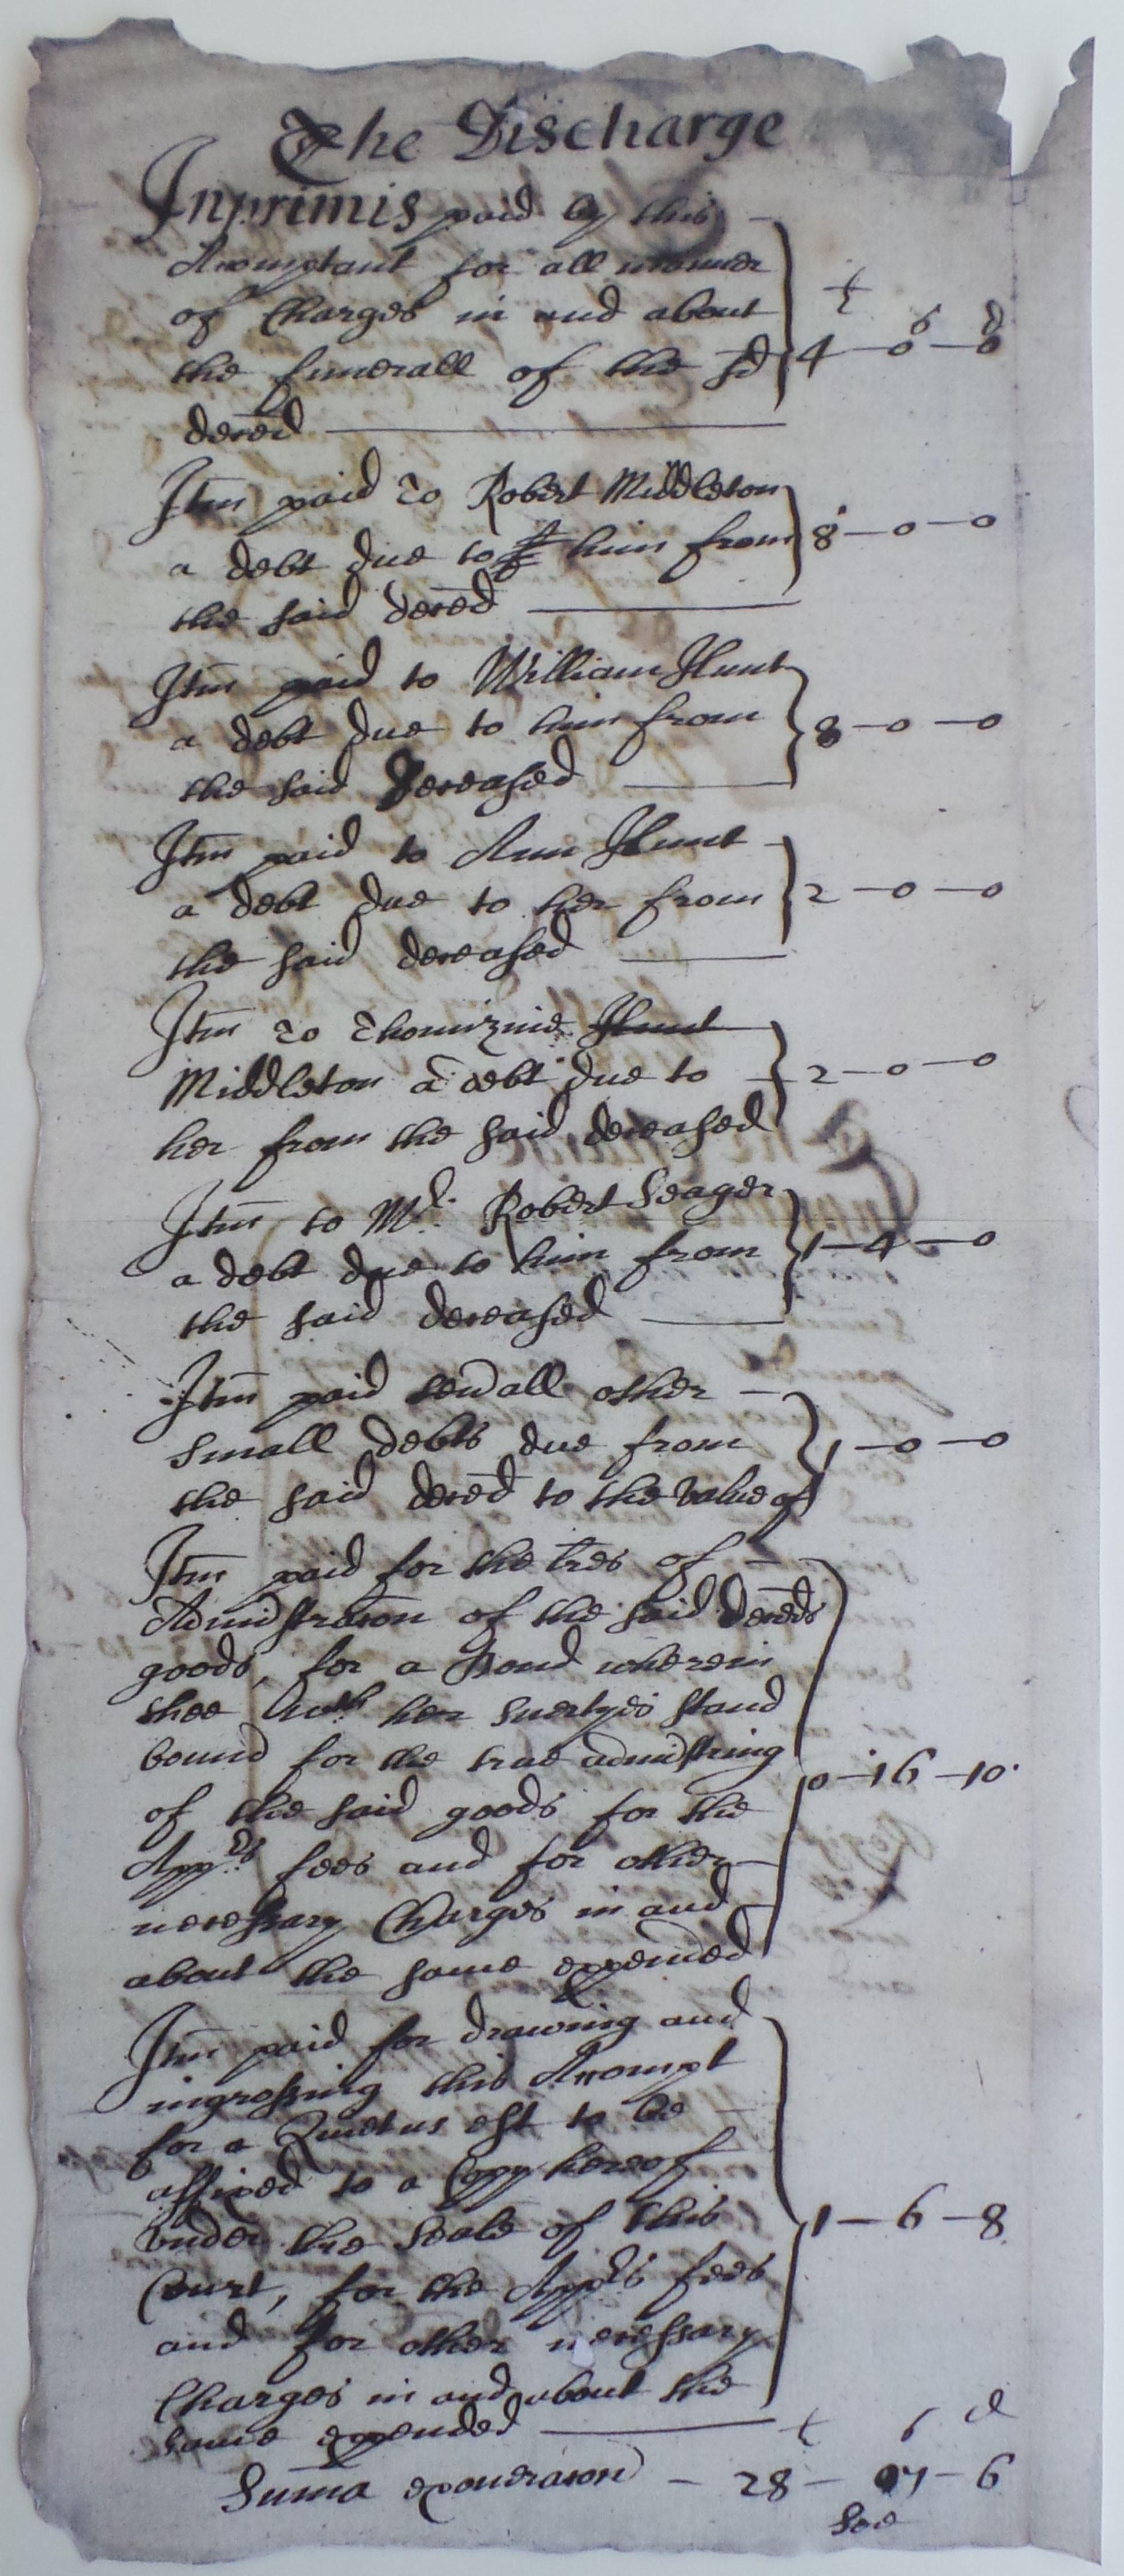 The Discharge
Inprimis paid by this
Accomptant for all manner
of Charges in and about £ s d
the funerall of the sd 4—0—0
deced
Itm paid to Robert Middleton
a debt due to him from 8—0—0
the said deced
Itm paid to William Hunt
a debt due to him from 8—0—0
the said deceased
Itm paid to Ann Hunt
a debt due to her from 2—0—0
the said deceased
Itm to Thomizine Hunt
Middleton a debt due to 2—0—0
her from the said deceased
Itm to Mr. Robert Seager
a debt due to him from 1—4—0
the said deceased
Itm paid sevall other
small debts due from 1—0—0
the said deced to the value of
Itm paid for the lres of
Admistracon of the said deceds
goods, for a Bond wherein
shee with her suertyes stand
bound for the true admistring
of the said goods for the 0—16—10
Apprs fees and for other
necessary Charges in and
about the same expended
Itm paid for drawing and
ingrossing this Accompt
for a Quietus est to be
affixed to a Copy hereof
under the Seale of this 1—6—8
Court, for the Apprs fees
and for other necessary
Charges in and about the
same expended £ s d
Suma exoneracon — 28—07—6